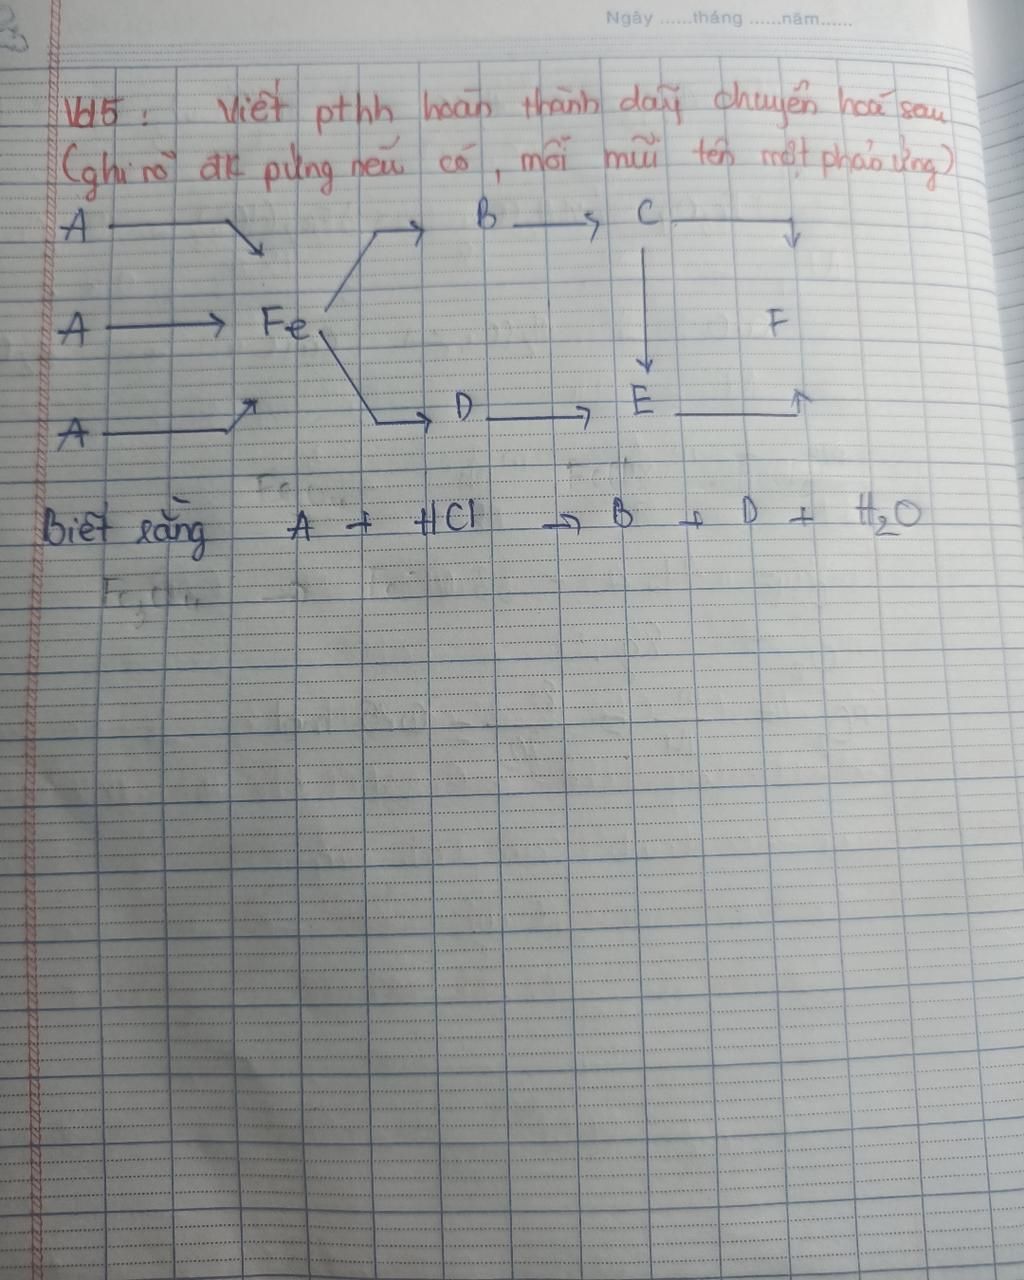 Ngày ......tháng ......năm......
Vd5 : Viết pthh hoàn thành dãy chuyển hoá sau
(ghi rõ đk pứng nếu có, mỗi mũi tên một phản ứng)
A B C
A Fe F
A D E
Biết rằng A + HCl → B + D + H₂O